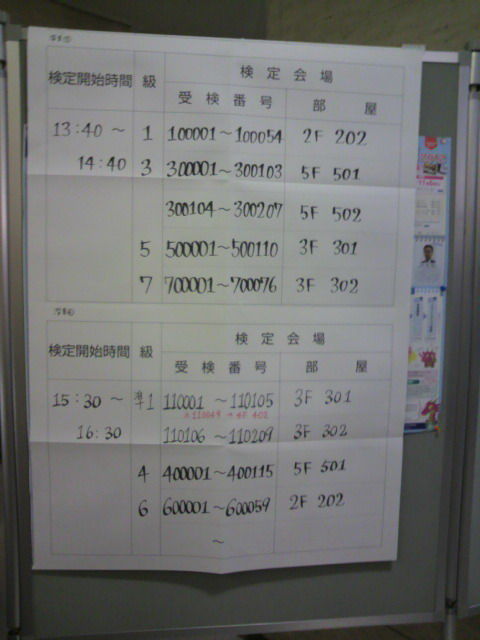 検定開始時間 級 検定会場
受検番号 部屋
13:40～ 1 100001～100054 2F 202
14:40 3 300001～300103 5F 501
300104～300207 5F 502
5 500001～500110 3F 301
7 700001～700076 3F 302
検定開始時間 級 検定会場
受検番号 部屋
15:30～ 準1 110001～110105 3F 301
16:30 110106～110209 3F 302
4 400001～400115 5F 501
6 600001～600059 2F 202
～